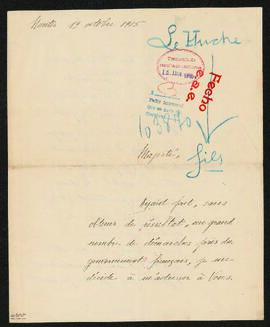 Nantes 19 octobre 1915
Le Huche
Fecho
e.a.e.
103870
fils
Majesté,
Ayant fait, sans
obtenir de résultat, un grand
nombre de démarches près du
gouvernement français, je me
décide à m'adresser à Vous.